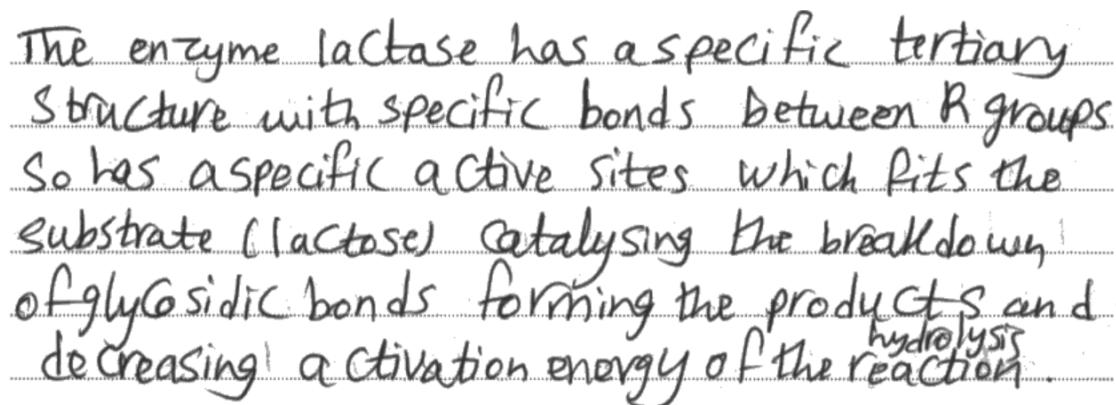 The enzyme lactase has a specific tertiary
structure with specific bonds between R groups
so has a specific active sites which fits the
substrate (lactose) catalysing the breakdown
of glycosidic bonds forming the products and
hydrolysis
decreasing activation energy of the reaction.